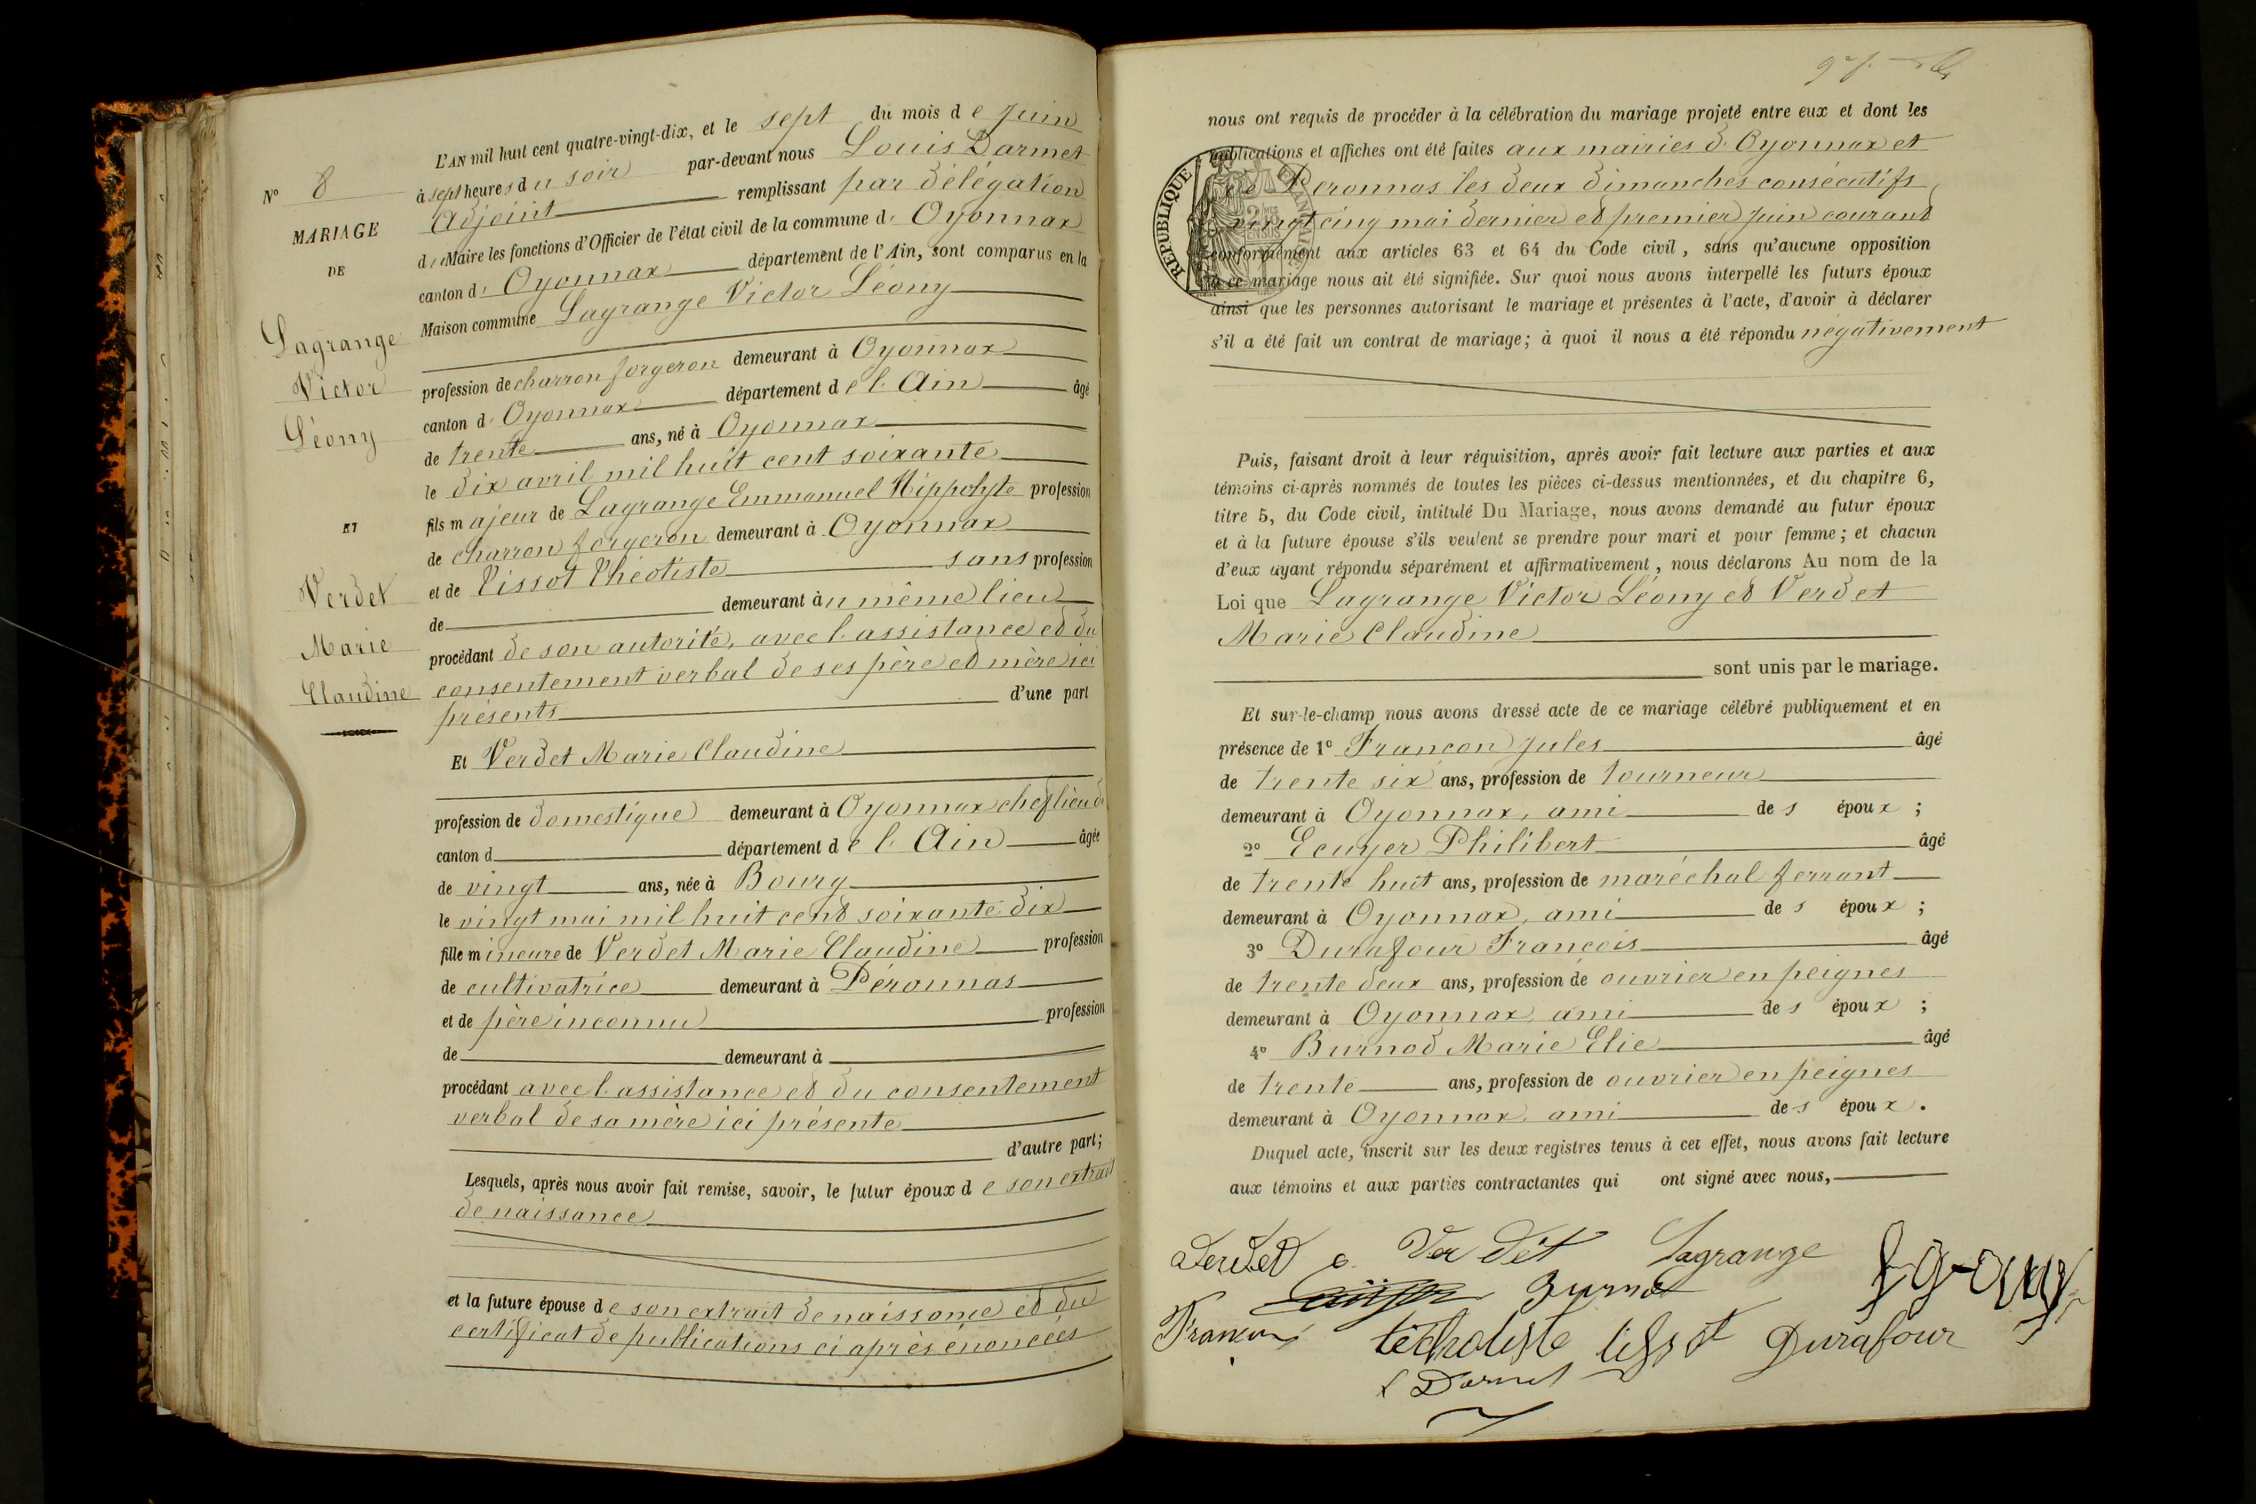 L'AN mil huit cent quatre-vingt-dix, et le sept du mois de juin
à sept heures du soir par-devant nous Louis Darmet
adjoint remplissant par délégation
du Maire les fonctions d'Officier de l'état civil de la commune d' Oyonnax
canton d' Oyonnax département de l'Ain, sont comparus en la
Maison commune Lagrange Victor Léony
profession de charron forgeron demeurant à Oyonnax
canton d' Oyonnax département de l'Ain âgé
de trente ans, né à Oyonnax
le dix avril mil huit cent soixante
fils majeur de Lagrange Emmanuel Hippolyte profession
de charron forgeron demeurant à Oyonnax
et de Tissot Théotiste sans profession
de demeurant au même lieu
procédant de son autorité, avec l'assistance et du
consentement verbal de ses père et mère ici
présents d'une part
Et Verdet Marie Claudine
profession de domestique demeurant à Oyonnax chef lieu de
canton d département de l'Ain âgée
de vingt ans, née à Bourg
le vingt mai mil huit cent soixante dix
fille mineure de Verdet Marie Claudine profession
de cultivatrice demeurant à Péronnas
et de père inconnu profession
de demeurant à
procédant avec l'assistance et du consentement
verbal de sa mère ici présente
d'autre part;
Lesquels, après nous avoir fait remise, savoir, le futur époux de son extrait
de naissance
et la future épouse de son extrait de naissance et du
certificat de publications ci après énoncées
N° 8
MARIAGE
DE
Lagrange
Victor
Léony
ET
Verdet
Marie
Claudine
nous ont requis de procéder à la célébration du mariage projeté entre eux et dont les
publications et affiches ont été faites aux mairies d'Oyonnax et
de Peronnas les deux dimanches consécutifs,
vingt cinq mai dernier et premier juin courant
conformément aux articles 63 et 64 du Code civil, sans qu'aucune opposition
à ce mariage nous ait été signifiée. Sur quoi nous avons interpellé les futurs époux
ainsi que les personnes autorisant le mariage et présentes à l'acte, d'avoir à déclarer
s'il a été fait un contrat de mariage; à quoi il nous a été répondu négativement
Puis, faisant droit à leur réquisition, après avoir fait lecture aux parties et aux
témoins ci-après nommés de toutes les pièces ci-dessus mentionnées, et du chapitre 6,
titre 5, du Code civil, intitulé Du Mariage, nous avons demandé au futur époux
et à la future épouse s'ils veulent se prendre pour mari et pour femme; et chacun
d'eux ayant répondu séparément et affirmativement, nous déclarons Au nom de la
Loi que Lagrange Victor Léony et Verdet
Marie Claudine
sont unis par le mariage.
Et sur-le-champ nous avons dressé acte de ce mariage célébré publiquement et en
présence de 1° Francon Jules âgé
de trente six ans, profession de tourneur
demeurant à Oyonnax, ami des époux;
2° Ecuyer Philibert âgé
de trente huit ans, profession de maréchal ferrant
demeurant à Oyonnax, ami des époux;
3° Durafour François âgé
de trente deux ans, profession de ouvrier en peignes
demeurant à Oyonnax, ami des époux;
4° Burnod Marie Elie âgé
de trente ans, profession de ouvrier en peignes
demeurant à Oyonnax, ami des époux.
Duquel acte, inscrit sur les deux registres tenus à cet effet, nous avons fait lecture
aux témoins et aux parties contractantes qui ont signé avec nous,
RÉPUBLIQUE
Verdet Lagrange
Burnod
Francon téthotiste tissot Durafour
L Darmet